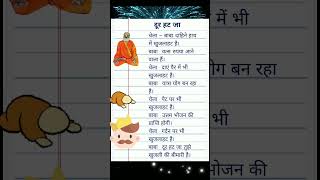 दूर हट जा
चेला - बाबा दाहिने हाथ
में खुजलाहट है।
बाबा
वाला है।
चेला दाएं पैर में भी
खुजलाहट है।
बाबा
योग बन रहा
है।
चेला पेट पर भी
खुजलाहट है।
बाबा उत्तम भोजन की
प्राप्ति होगी।
चेला गर्दन पर भी
खुजलाहट है।
बाबा दूर हट जा तुझे
खुजली की बीमारी है।
में भी
योग बन रहा
भोजन की